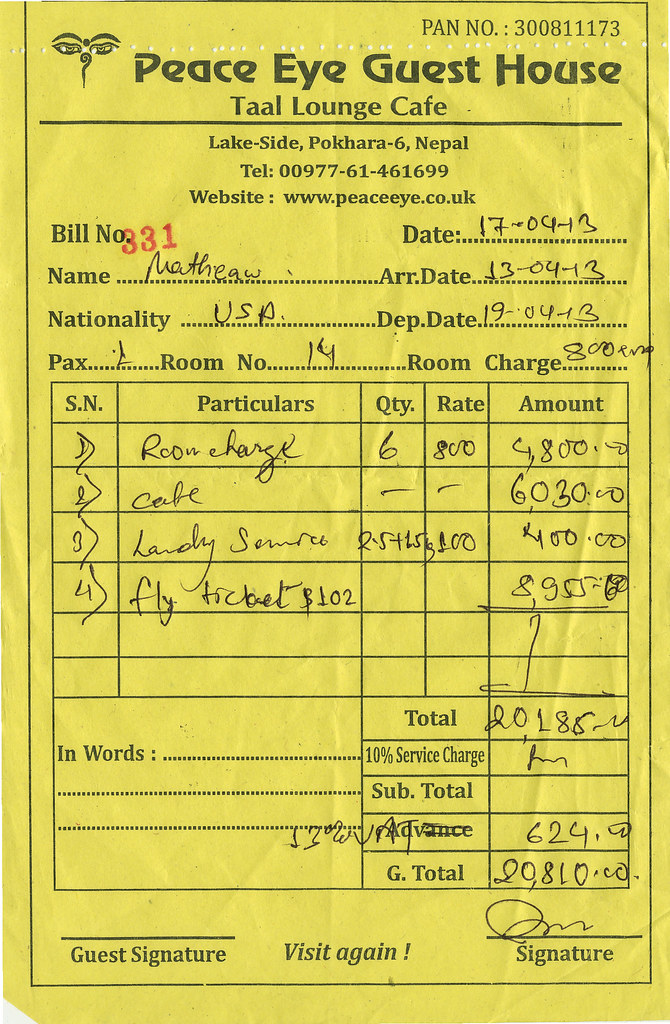 PAN NO. : 300811173
Peace Eye Guest House
Taal Lounge Cafe
Lake-Side, Pokhara-6, Nepal
Tel: 00977-61-461699
Website : www.peaceeye.co.uk
Bill No. 331 Date: 17-04-13
Name Matheaw Arr.Date 13-04-13
Nationality USA. Dep.Date 19-04-13
Pax. 1 Room No. 14 Room Charge 800
S.N. Particulars Qty. Rate Amount
1) Room charge 6 800 4,800.00
2) cafe — — 6,030.00
3) Landy Service 2.5+1.5 100 400.00
4) fly ticket $102 8,955.00
Total 20,185
In Words : 10% Service Charge
Sub. Total
13% VAT Advance 624.00
G. Total 20,810.00
Guest Signature Visit again ! Signature